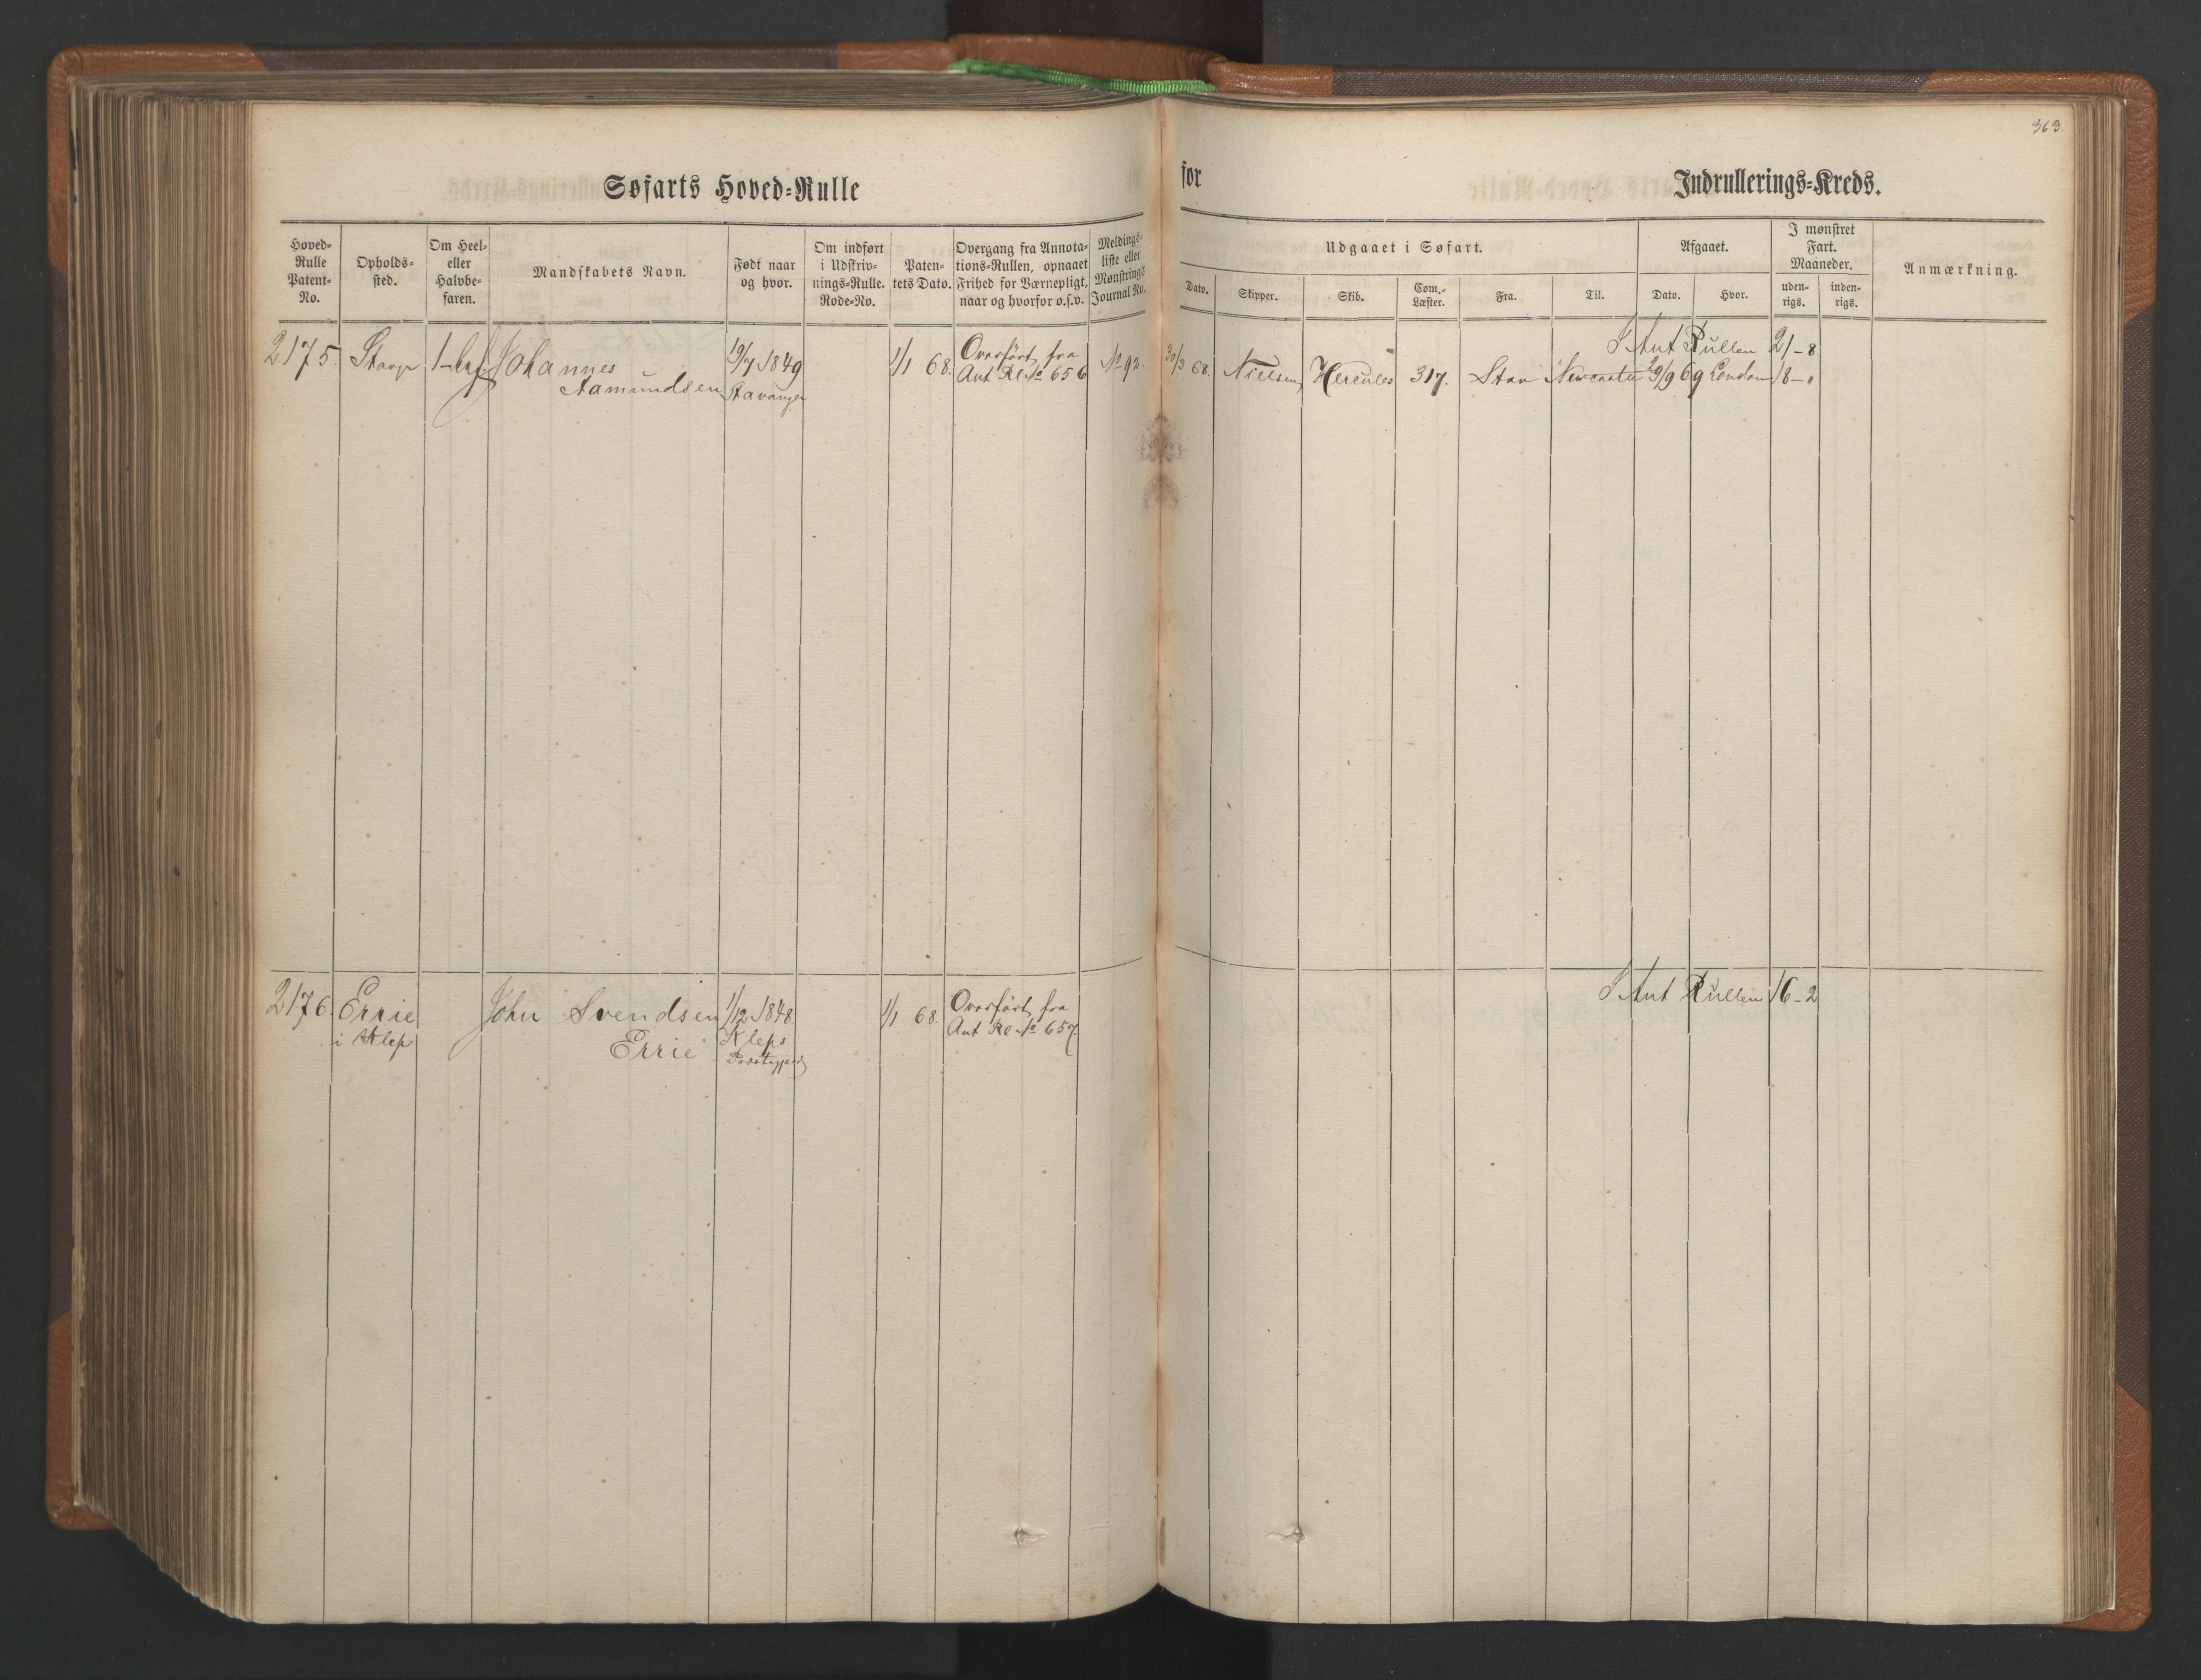 363.
Søfarts Hoved-Rulle
for Indrullerings-Kreds.
Hoved-Rulle Patent-No.
Opholds-sted.
Om Heel- eller Halvbe-faren.
Mandskabets Navn.
Født naar og hvor.
Om indført i Udskriv-nings-Rulle. Rode-No.
Paten-tets Dato.
Overgang fra Annota-tions-Rullen, opnaaet Frihed for Værnepligt, naar og hvorfor o.s.v.
Meldings-liste eller Mønstrings Journal No.
Udgaaet i Søfart.
Afgaaet.
I mønstret Fart. Maaneder.
Anmærkning.
Dato.
Skipper.
Skib.
Com.-Læster.
Fra.
Til.
Dato.
Hvor.
uden-rigs.
inden-rigs.
I Ant Rullen 21-8
2175. 1-hf Johannes 19/7 1849 1/1 68. Overført fra No 92. 30/3 68. Nielsen Hercules 317. Stav Newcastle 29/9 69 London 18-
Aamundsen Stavanger Ant Rl No 656
I Ant Rullen 16-2
2176. Errie John Svendsen 1/12 1848 1/1 68. Overført fra
i Klep Errie Kleps Ant Rl No 657.
Præstegjeld